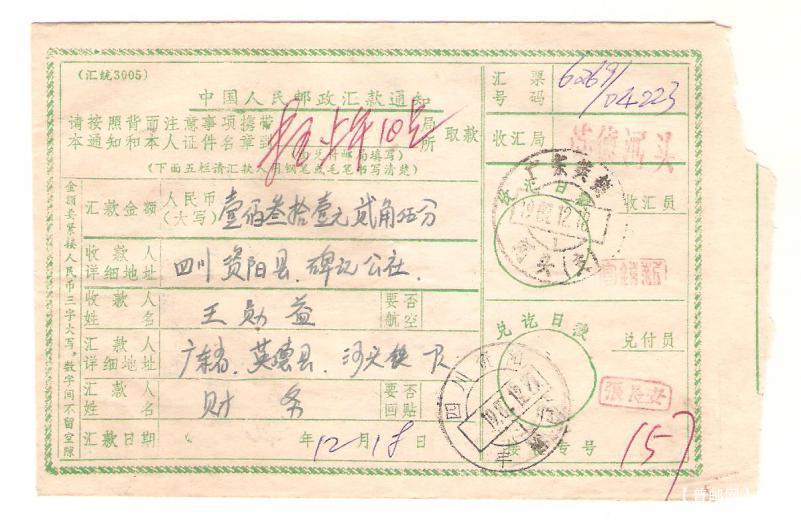 (汇统3005)
中国人民邮政汇款通知
请按照背面注意事项携带
本通知和本人证件名章到
局
所
取款
(由兑付邮局填写)
(下面五栏请汇款人用钢笔或毛笔书写清楚)
汇票
号码
6269/
04223
收汇局
英德河头
金额要紧接人民币三字大写,数字间不留空隙
汇款金额
人民币
(大写)
壹佰叁拾壹元贰角伍分
收款人
详细地址
四川资阳县.碑记公社.
收款人
姓名
王勋益
要否
航空
汇款人
详细地址
广东省.英德县.河头
汇款人
姓名
财务
要否
回帖
汇款日期
年12月18日
收汇日戳
广东英德
河头
收汇员
兑讫日戳
四川
兑付员
张
安
专号
157